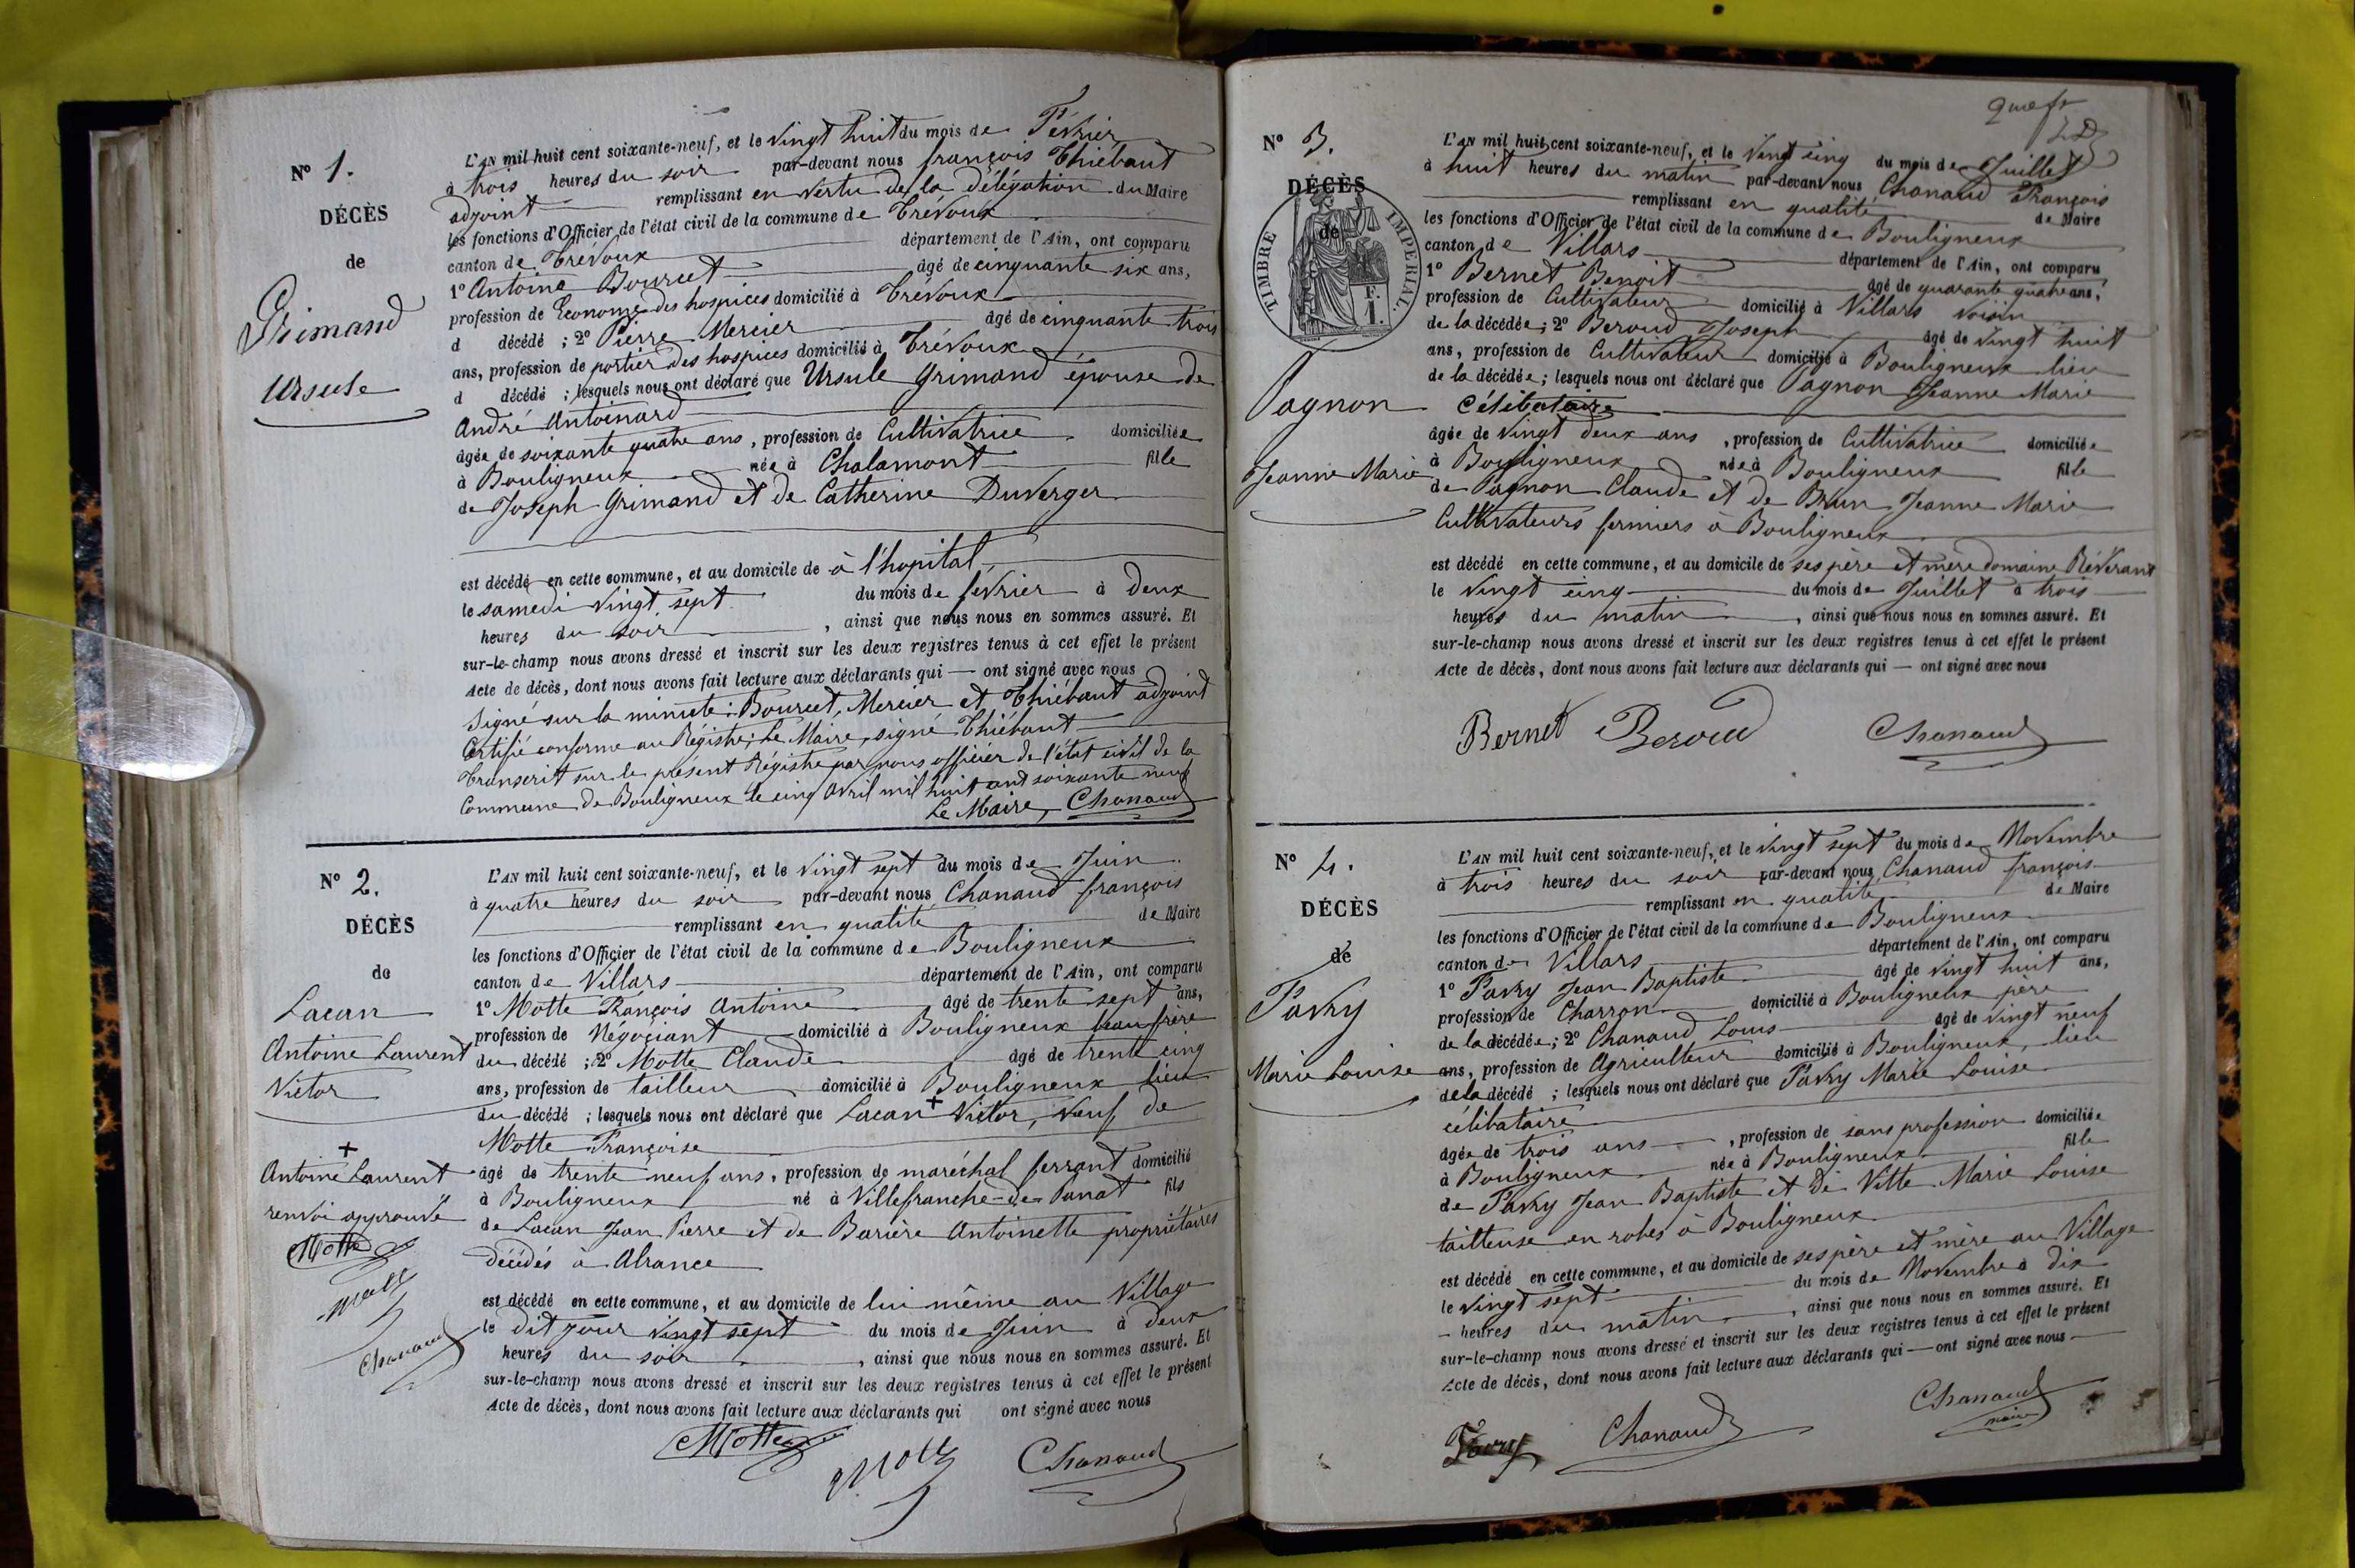 N° 1.
DÉCÈS
de
Grimand
Ursule
L'AN mil huit cent soixante-neuf, et le Vingt huit du mois de Février
à trois heures du soir par-devant nous françois Thiébaut
adjoint remplissant en vertu de la délégation du Maire
les fonctions d'Officier de l'état civil de la commune de Trévoux
canton de Trévoux département de l'Ain, ont comparu
1° Antoine Bourcet âgé de cinquante six ans,
profession de Econome des hospices domicilié à Trévoux
d décédé ; 2° Pierre Mercier âgé de cinquante trois
ans, profession de portier des hospices domicilié à Trévoux
d décédé ; lesquels nous ont déclaré que Ursule Grimand épouse de
André Antoinard
âgée de soixante quatre ans, profession de Cultivatrice domiciliée
à Bouligneux née à Chalamont fille
de Joseph Grimand et de Catherine Duverger
est décédé en cette commune, et au domicile de à l'hopital
le samedi vingt sept du mois de février à deux
heures du soir , ainsi que nous nous en sommes assuré. Et
sur-le-champ nous avons dressé et inscrit sur les deux registres tenus à cet effet le présent
Acte de décès, dont nous avons fait lecture aux déclarants qui — ont signé avec nous
Signé sur la minute : Bourcet, Mercier et Thiébaut adjoint
Certifié conforme au Régistre, Le Maire, signé Thiébaut
Transcrit sur le présent Régistre par nous officier de l'état civil de la
Commune de Bouligneux le cinq Avril mil huit cent soixante neuf
Le Maire, Chanaud
N° 2.
DÉCÈS
de
Lacan
Antoine Laurent
Victor
+
Antoine Laurent
renvoi approuvé
Motte
Motte
Chanaud
L'AN mil huit cent soixante-neuf, et le Vingt sept du mois de Juin
à quatre heures du soir par-devant nous Chanaud françois
remplissant en qualité de Maire
les fonctions d'Officier de l'état civil de la commune de Bouligneux
canton de Villars département de l'Ain, ont comparu
1° Motte François Antoine âgé de trente sept ans,
profession de Négociant domicilié à Bouligneux beau frère
du décédé ; 2° Motte Claude âgé de trente cinq
ans, profession de tailleur domicilié à Bouligneux lieu
du décédé ; lesquels nous ont déclaré que Lacan + Victor, veuf de
Motte Françoise
âgé de trente neuf ans, profession de maréchal ferrant domicilié
à Bouligneux né à Villefranche-de-Panat fils
de Lacan Jean Pierre et de Barière Antoinette propriétaires
décédés à Alrance
est décédé en cette commune, et au domicile de lui même au Village
le dit jour vingt sept du mois de Juin à deux
heures du soir , ainsi que nous nous en sommes assuré. Et
sur-le-champ nous avons dressé et inscrit sur les deux registres tenus à cet effet le présent
Acte de décès, dont nous avons fait lecture aux déclarants qui ont signé avec nous
Motte Motte Chanaud
N° 3.
DÉCÈS
de
TIMBRE IMPÉRIAL.
F.
1.
Pagnon
Jeanne Marie
L'AN mil huit cent soixante-neuf, et le Vingt cinq du mois de Juillet
à huit heures du matin par-devant nous Chanaud François
remplissant en qualité de Maire
les fonctions d'Officier de l'état civil de la commune de Bouligneux
canton de Villars département de l'Ain, ont comparu
1° Bernet Benoit âgé de quarante quatre ans,
profession de Cultivateur domicilié à Villars voisin
de la décédée ; 2° Beroud Joseph âgé de vingt huit
ans, profession de Cultivateur domicilié à Bouligneux lieu
de la décédée ; lesquels nous ont déclaré que Pagnon Jeanne Marie
Célibataire
âgée de vingt deux ans , profession de Cultivatrice domiciliée
à Bouligneux née à Bouligneux fille
de Pagnon Claude et de Brun Jeanne Marie
Cultivateurs fermiers à Bouligneux
est décédé en cette commune, et au domicile de ses père et mère domaine Révérant
le vingt cinq du mois de Juillet à trois
heures du matin , ainsi que nous nous en sommes assuré. Et
sur-le-champ nous avons dressé et inscrit sur les deux registres tenus à cet effet le présent
Acte de décès, dont nous avons fait lecture aux déclarants qui — ont signé avec nous
Bernet Beroud Chanaud
N° 4.
DÉCÈS
de
Pavry
Marie Louise
L'AN mil huit cent soixante-neuf, et le Vingt sept du mois de Novembre
à trois heures du soir par-devant nous Chanaud françois
remplissant en qualité de Maire
les fonctions d'Officier de l'état civil de la commune de Bouligneux
canton de Villars département de l'Ain, ont comparu
1° Pavry Jean Baptiste âgé de vingt huit ans,
profession de Charron domicilié à Bouligneux père
de la décédée ; 2° Chanaud Louis âgé de vingt neuf
ans, profession de Agriculteur domicilié à Bouligneux, lieu
de la décédé ; lesquels nous ont déclaré que Pavry Marie Louise
célibataire
âgée de trois ans , profession de sans profession domiciliée
à Bouligneux née à Bouligneux fille
de Pavry Jean Baptiste et de Vitte Marie Louise
tailleuse en robes à Bouligneux
est décédé en cette commune, et au domicile de ses père et mère au Village
le vingt sept du mois de Novembre à dix
heures du matin , ainsi que nous nous en sommes assuré. Et
sur-le-champ nous avons dressé et inscrit sur les deux registres tenus à cet effet le présent
Acte de décès, dont nous avons fait lecture aux déclarants qui — ont signé avec nous
Pavry Chanaud Chanaud
maire